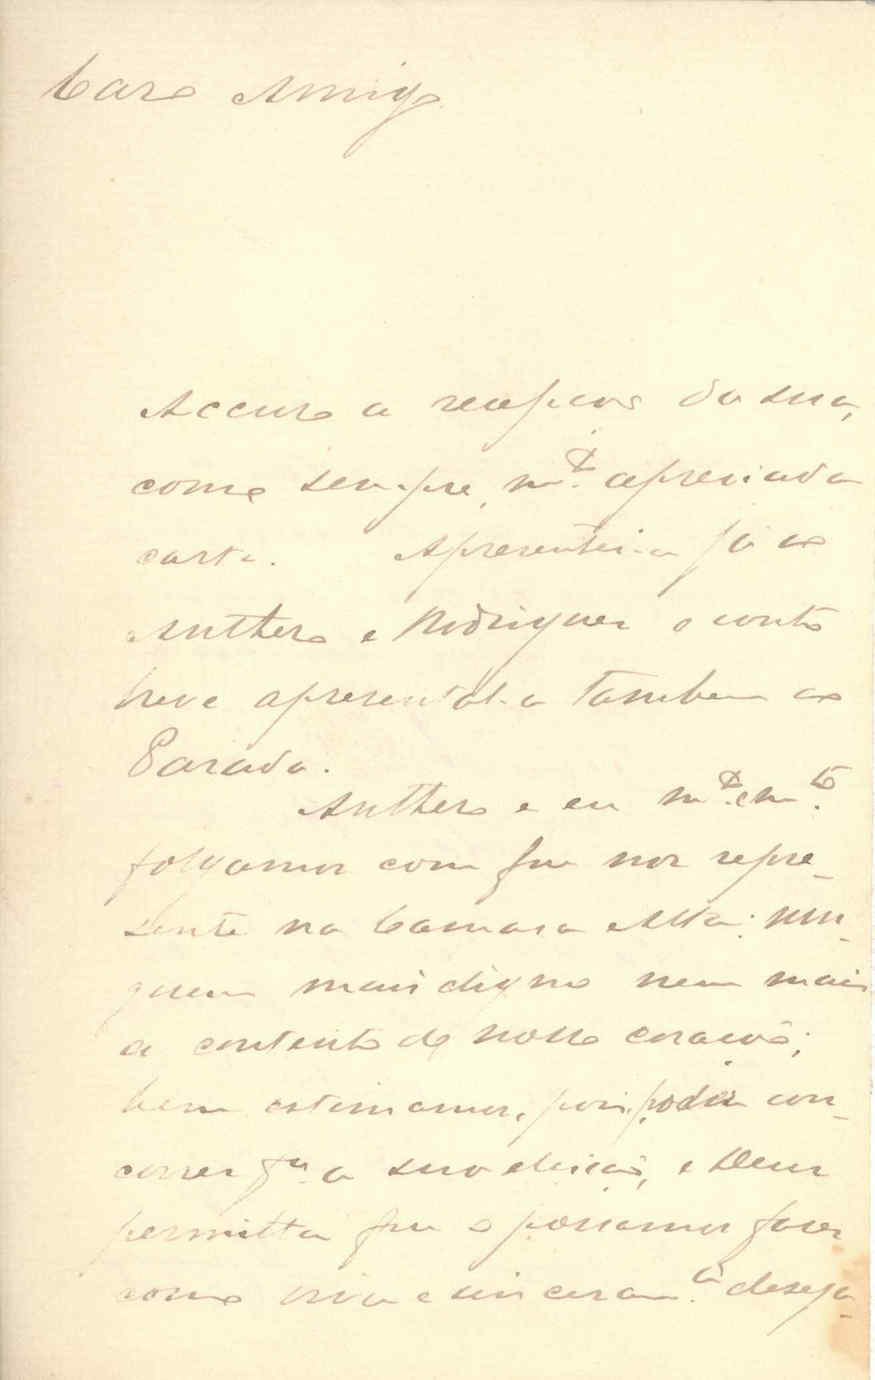 Caro Amigo
Accuso a recepção da sua,
como sempre, m.ta apreciada
carta. Apresentei-a já ao
Anthero e Rodrigues e conto
breve apresental-a tambem ao
Parada.
Anthero e eu m.to e m.to
folgamos com que nos repre-
sente na Camara Alta: nin-
guem mais digno nem mais
a contento do nosso coração;
bem estimamos, pois, poder con-
correr p.a a sua eleição, e Deus
permitta que o possamos fazer
como viva e sinceram.te deseja-